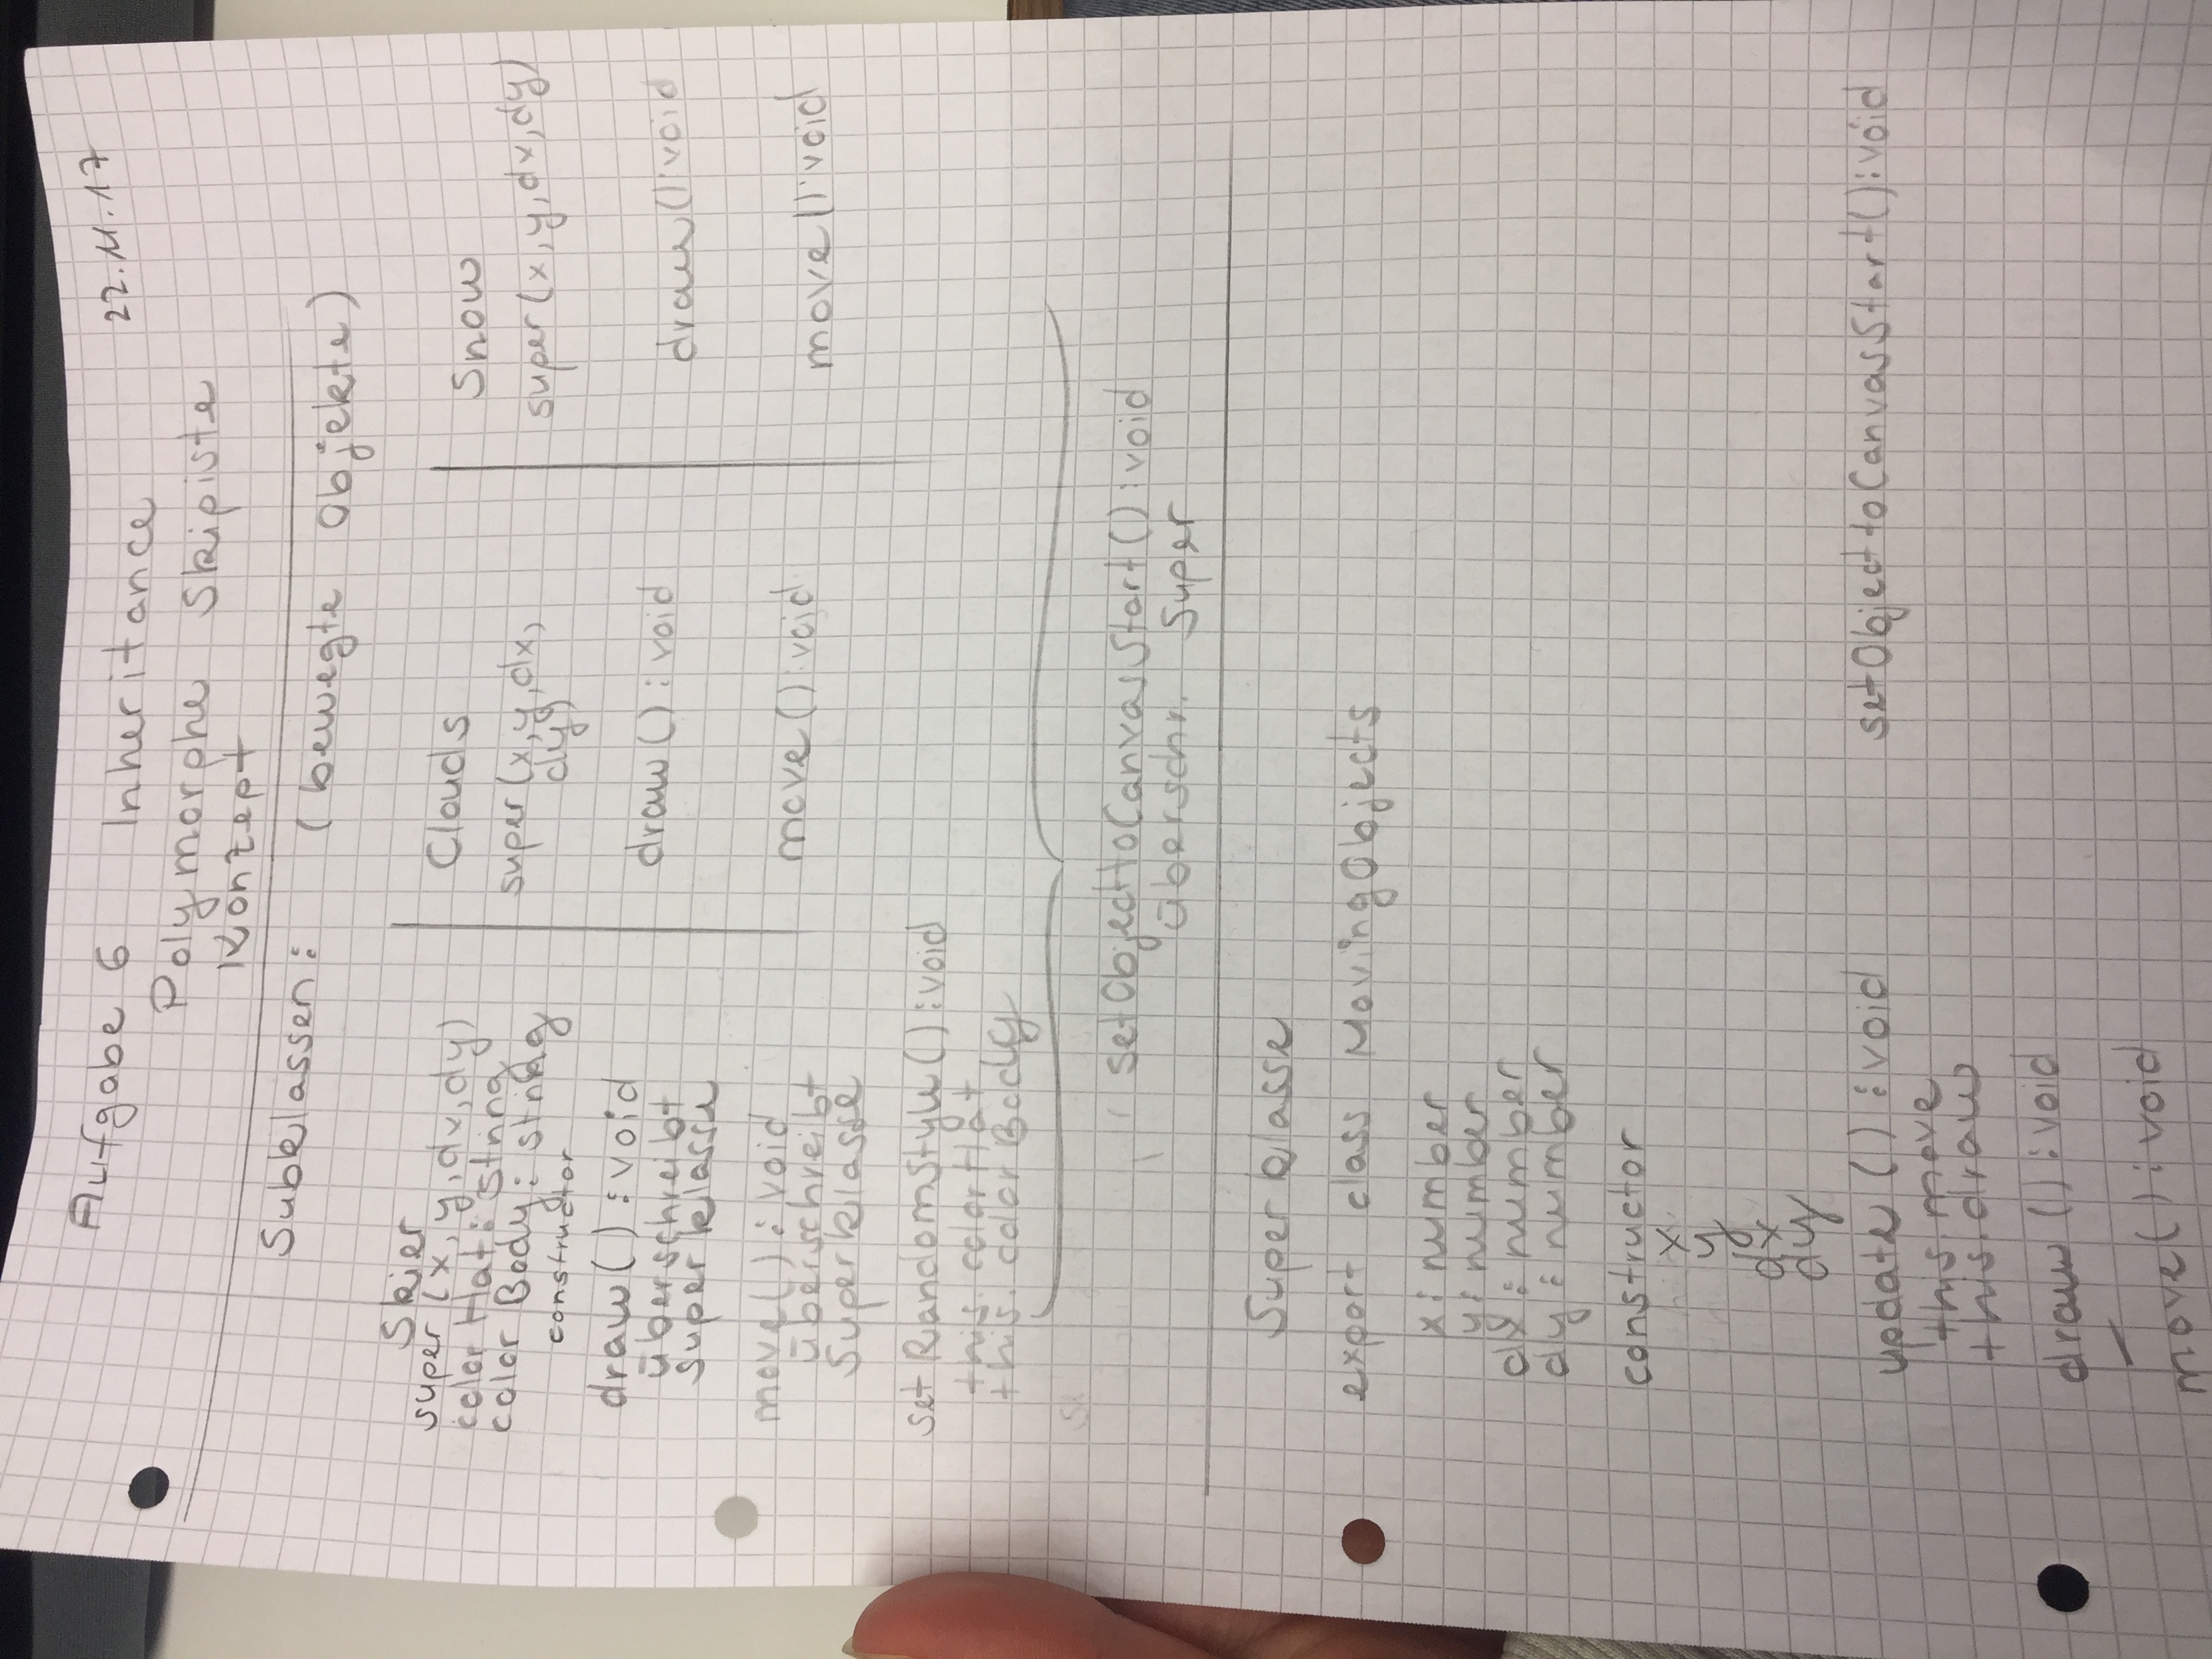 Aufgabe 6 Inheritance 22.11.17
Polymorphe Skipiste
Konzept
Subklassen: (bewegte Objekte)
Skier
super (x, y, dx, dy)
color Hat: string
color Body: string
constructor
draw() : void
überschreibt
Superklasse
move() : void
überschreibt
Superklasse
setRandomStyle() : void
this. colorHat
this. colorBody
Clouds
super(x, y, dx,
dy)
draw() : void
move() : void
Snow
super(x, y, dx, dy)
draw() : void
move() : void
setObjecttoCanvasStart() : void
überschr. Super
Superklasse
export class MovingObjects
x : number
y : number
dx : number
dy : number
constructor
x
y
dx
dy
update () : void
this. move
this. draw
draw () : void
move() : void
setObjecttoCanvasStart() : void